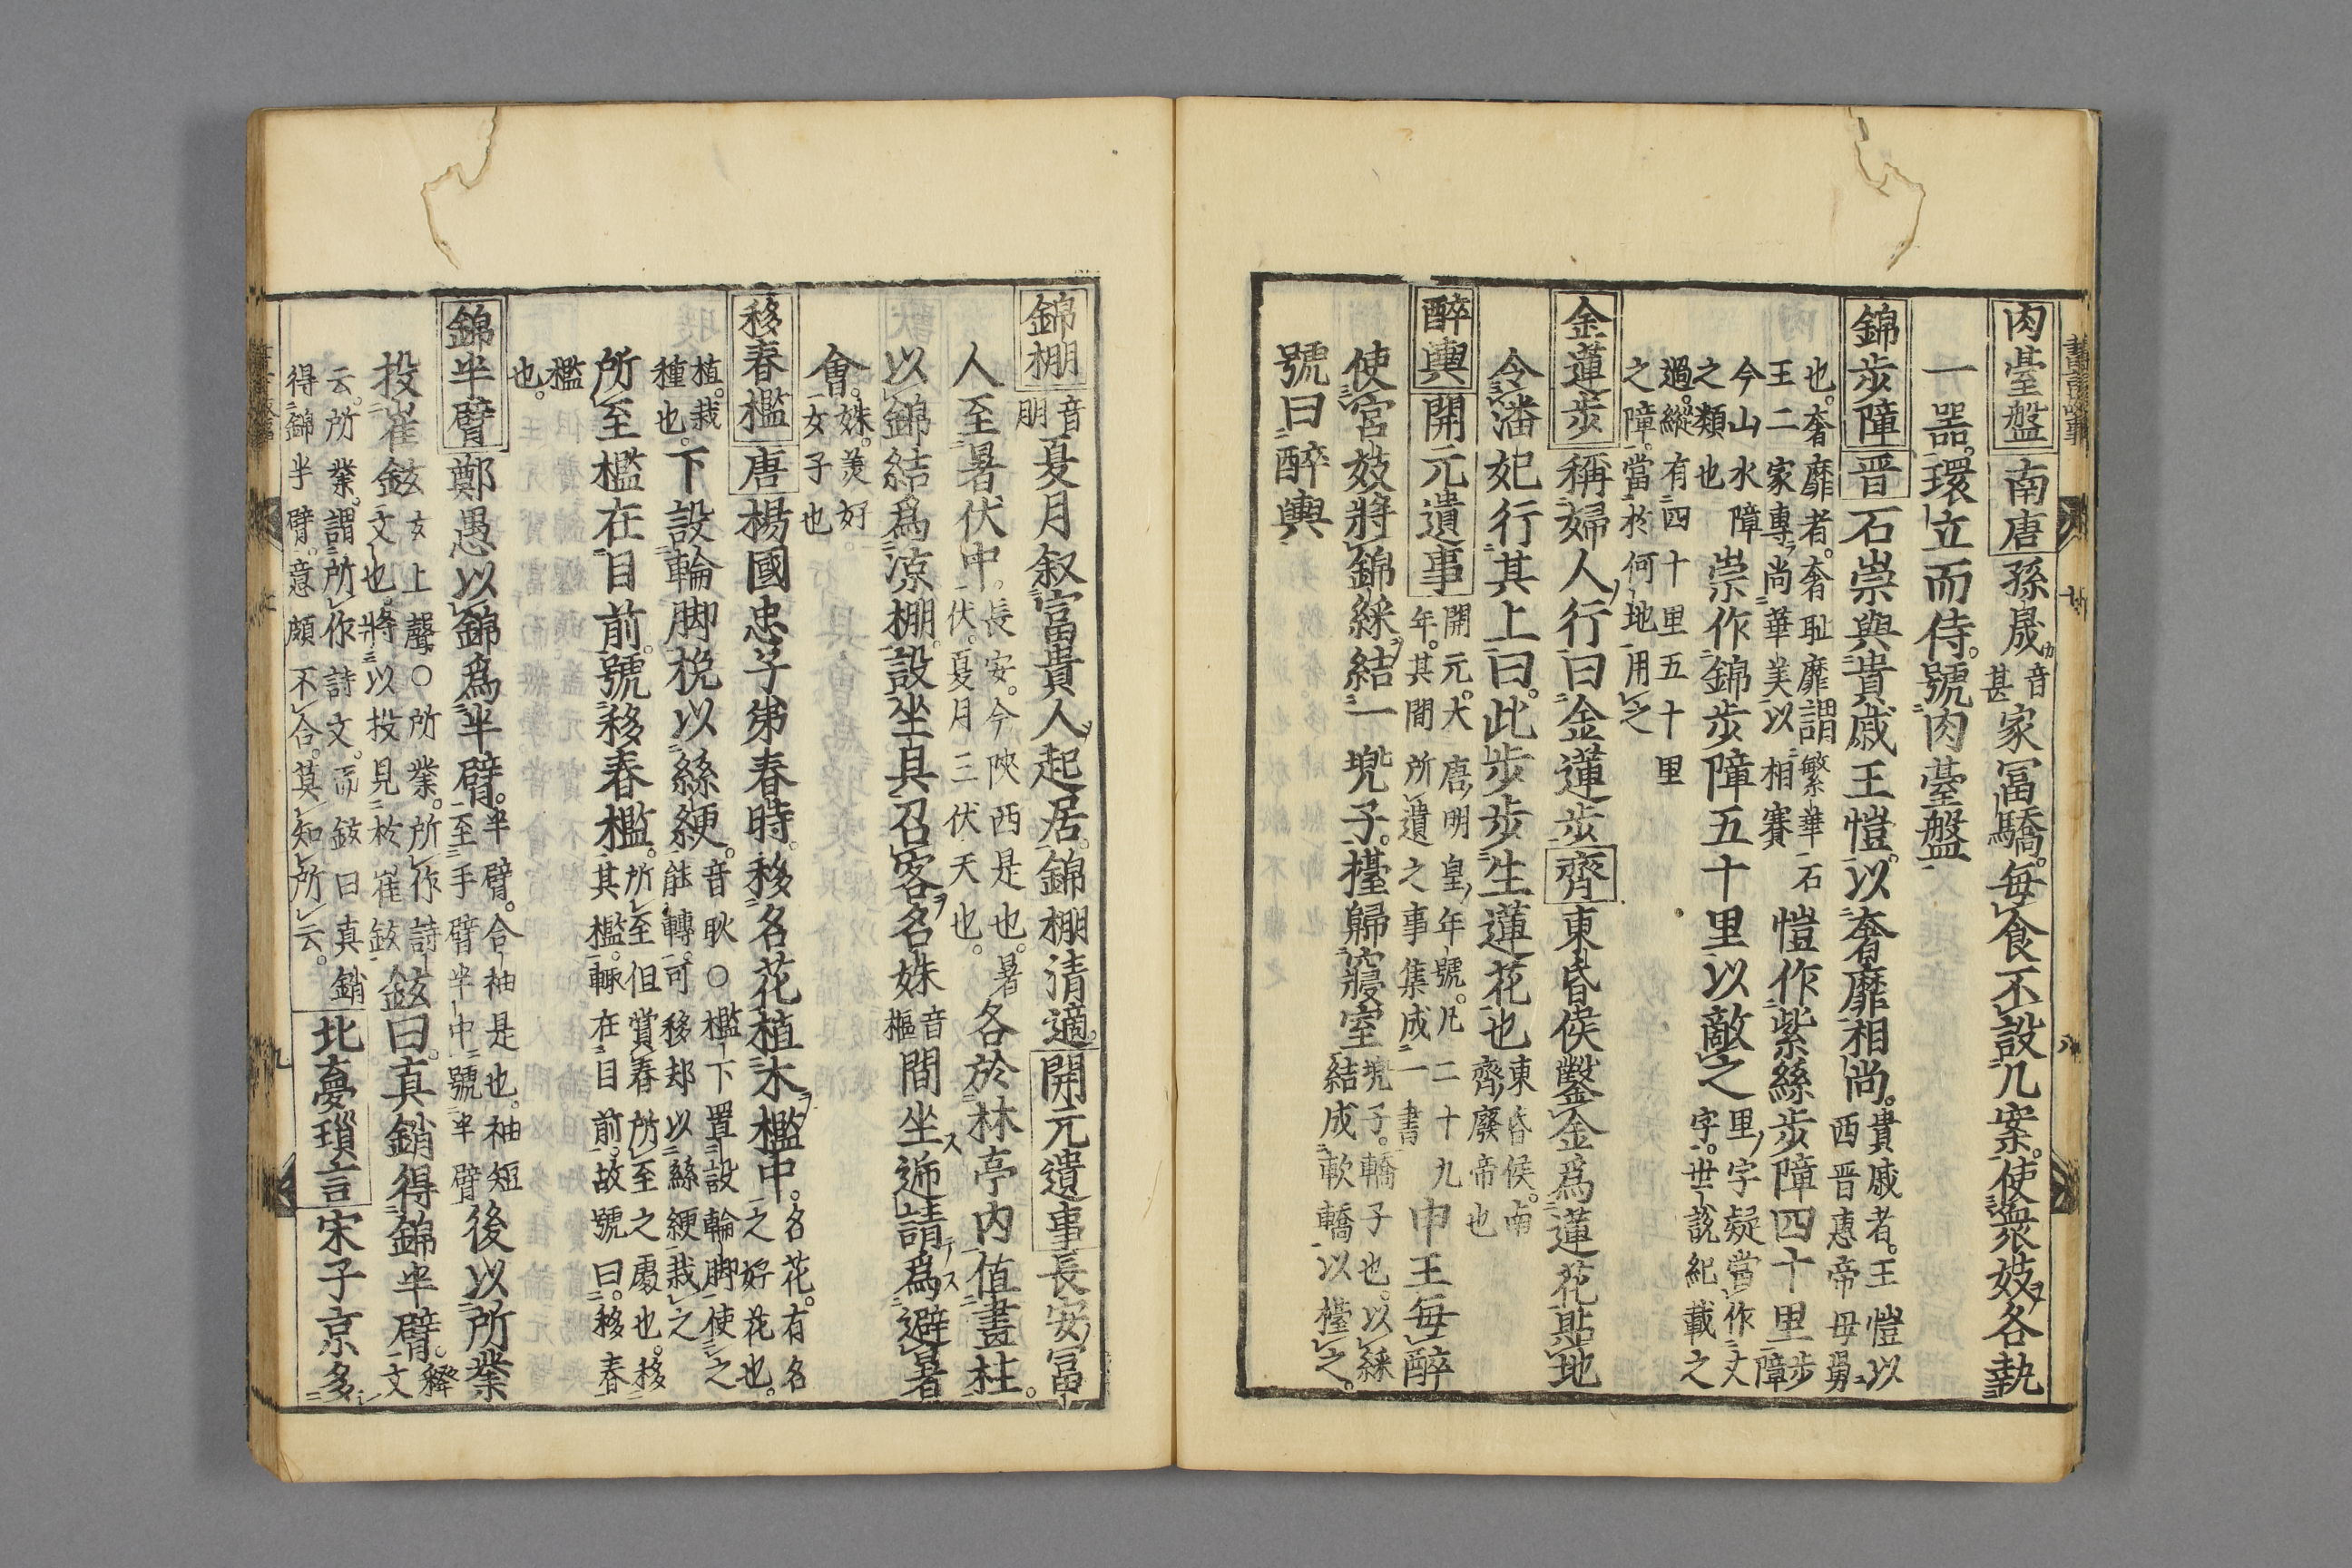 肉臺盤 南唐孫晟音甚家富驕。每食不設几案。使衆妓各執
一器。環立而侍。號肉臺盤
錦步障 晋石崇與貴戚王愷。以奢靡相尚。貴戚者。王愷以西晋惠帝母舅
也。奢靡者。奢耻靡謂繁華石王二家專尚華美以相賽愷作紫絲步障四十里步障
今山水障之類也崇作錦步障五十里以敵之里字疑當作丈字。世說紀載之
過。縱有四十里五十里之障。當於何地用之
金蓮步 稱婦人行曰金蓮步 齊東昏侯鑿金爲蓮花貼地
令潘妃行其上曰。此步步生蓮花也東昏侯。南齊廢帝也
醉輿 開元遺事開元。大唐明皇年號。凡二十九年。其間所遺之事集成一書申王每醉
使宮妓將錦綵結一兜子。擡歸寢室兜子。轎子也。以綵結成軟轎以擡之。
號曰醉輿
錦棚音朋夏月叙富貴人起居。錦棚清適。開元遺事長安富
人至暑伏中。長安。今陝西是也。暑伏。夏月三伏天也。各於林亭内值畫柱。
以錦結爲凉棚。設坐具召客名姝音樞間坐遞請爲避暑
會。姝。美好女子也
移春檻 唐楊國忠子弟春時。移名花植木檻中。名花。有名之好花也。
植。栽種也。下設輪脚挽以絲綆。音耿○檻下置設輪脚使之能轉。可移却以絲綆栽之
所至檻在目前。號移春檻。所至但賞春所至之處也。移其檻。輙在目前。故號曰。移春
檻也。
錦半臂 鄭愚以錦爲半臂。半臂。合袖是也。袖短至手臂半中號半臂後以所業
投崔鉉玄上聲○所業。所作詩文也。將以投見於崔鉉鉉曰。真銷得錦半臂。釋文
云。所業。謂所作詩文。而鉉曰真銷得錦半臂。意頗不合。莫知所云。北夢瑣言宋子京多